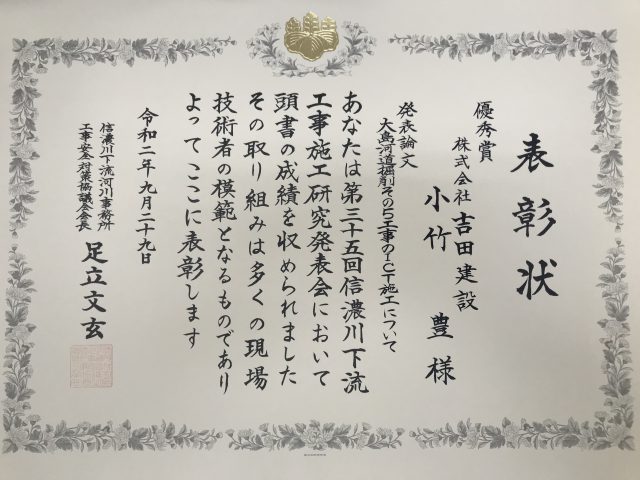 表彰状
優秀賞
株式会社 吉田建設
小竹 豊 様
発表論文
大島河道掘削その5工事のICT施工について
あなたは第三十五回信濃川下流
工事施工研究発表会において
頭書の成績を収められました
その取り組みは多くの現場
技術者の模範となるものであり
よってここに表彰します
令和二年九月二十九日
信濃川下流河川事務所
工事安全対策協議会会長
足立文玄